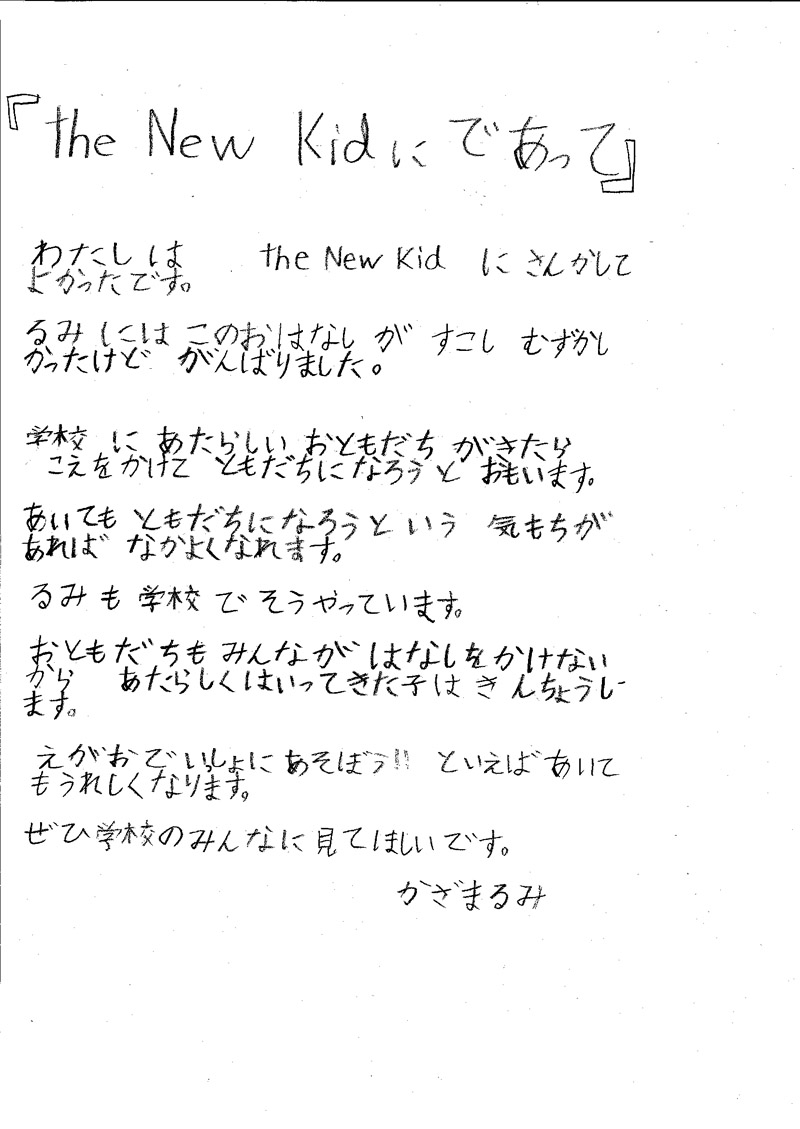 『the New Kidにであって』
わたしは the New Kid にさんかして
よかったです。
るみにはこのおはなしが すこし むずかし
かったけど がんばりました。
学校にあたらしいおともだちがきたら
こえをかけて ともだちになろうと おもいます。
あいてもともだちになろうという 気もちが
あれば なかよくなれます。
るみも学校でそうやっています。
おともだちもみんながはなしをかけない
から あたらしくはいってきた子はきんちょうし
ます。
えがおでいっしょにあそぼう!! といえばあいて
もうれしくなります。
ぜひ学校のみんなに見てほしいです。
かざまるみ